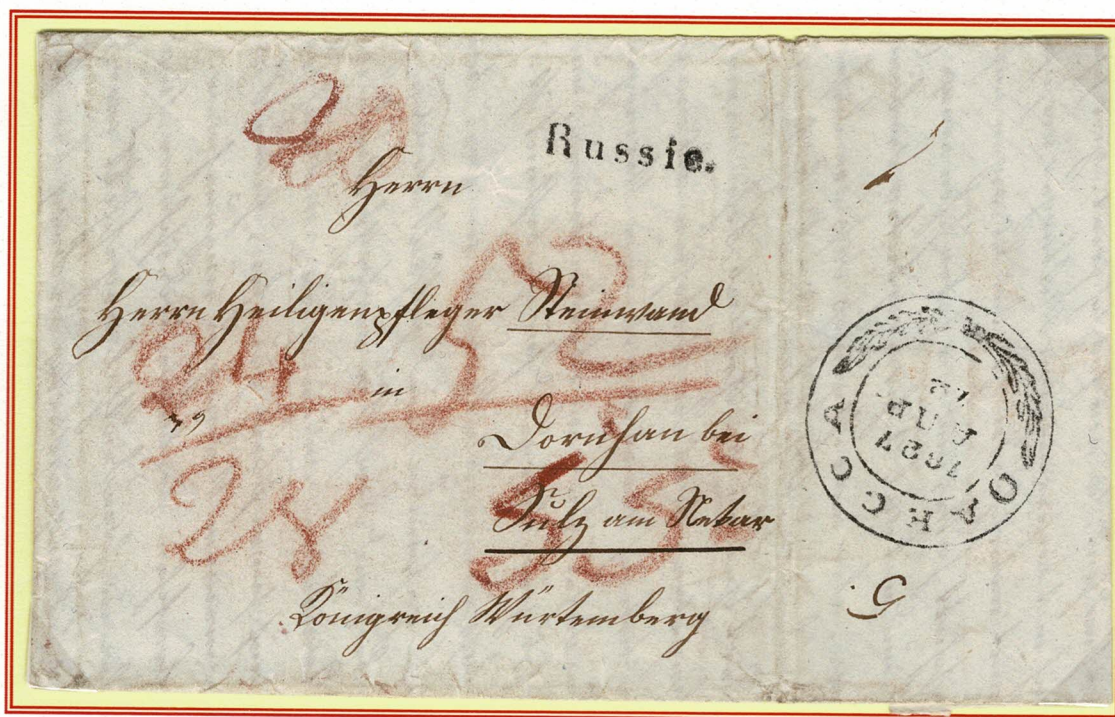 Russie.
Herrn
Herrn Heiligenpfleger Steinwand
in
Dornhan bei
Sulz am Nekar
Königreich Würtemberg
24
52
28
3
55
ОДЕССА
1827
АПР.
12